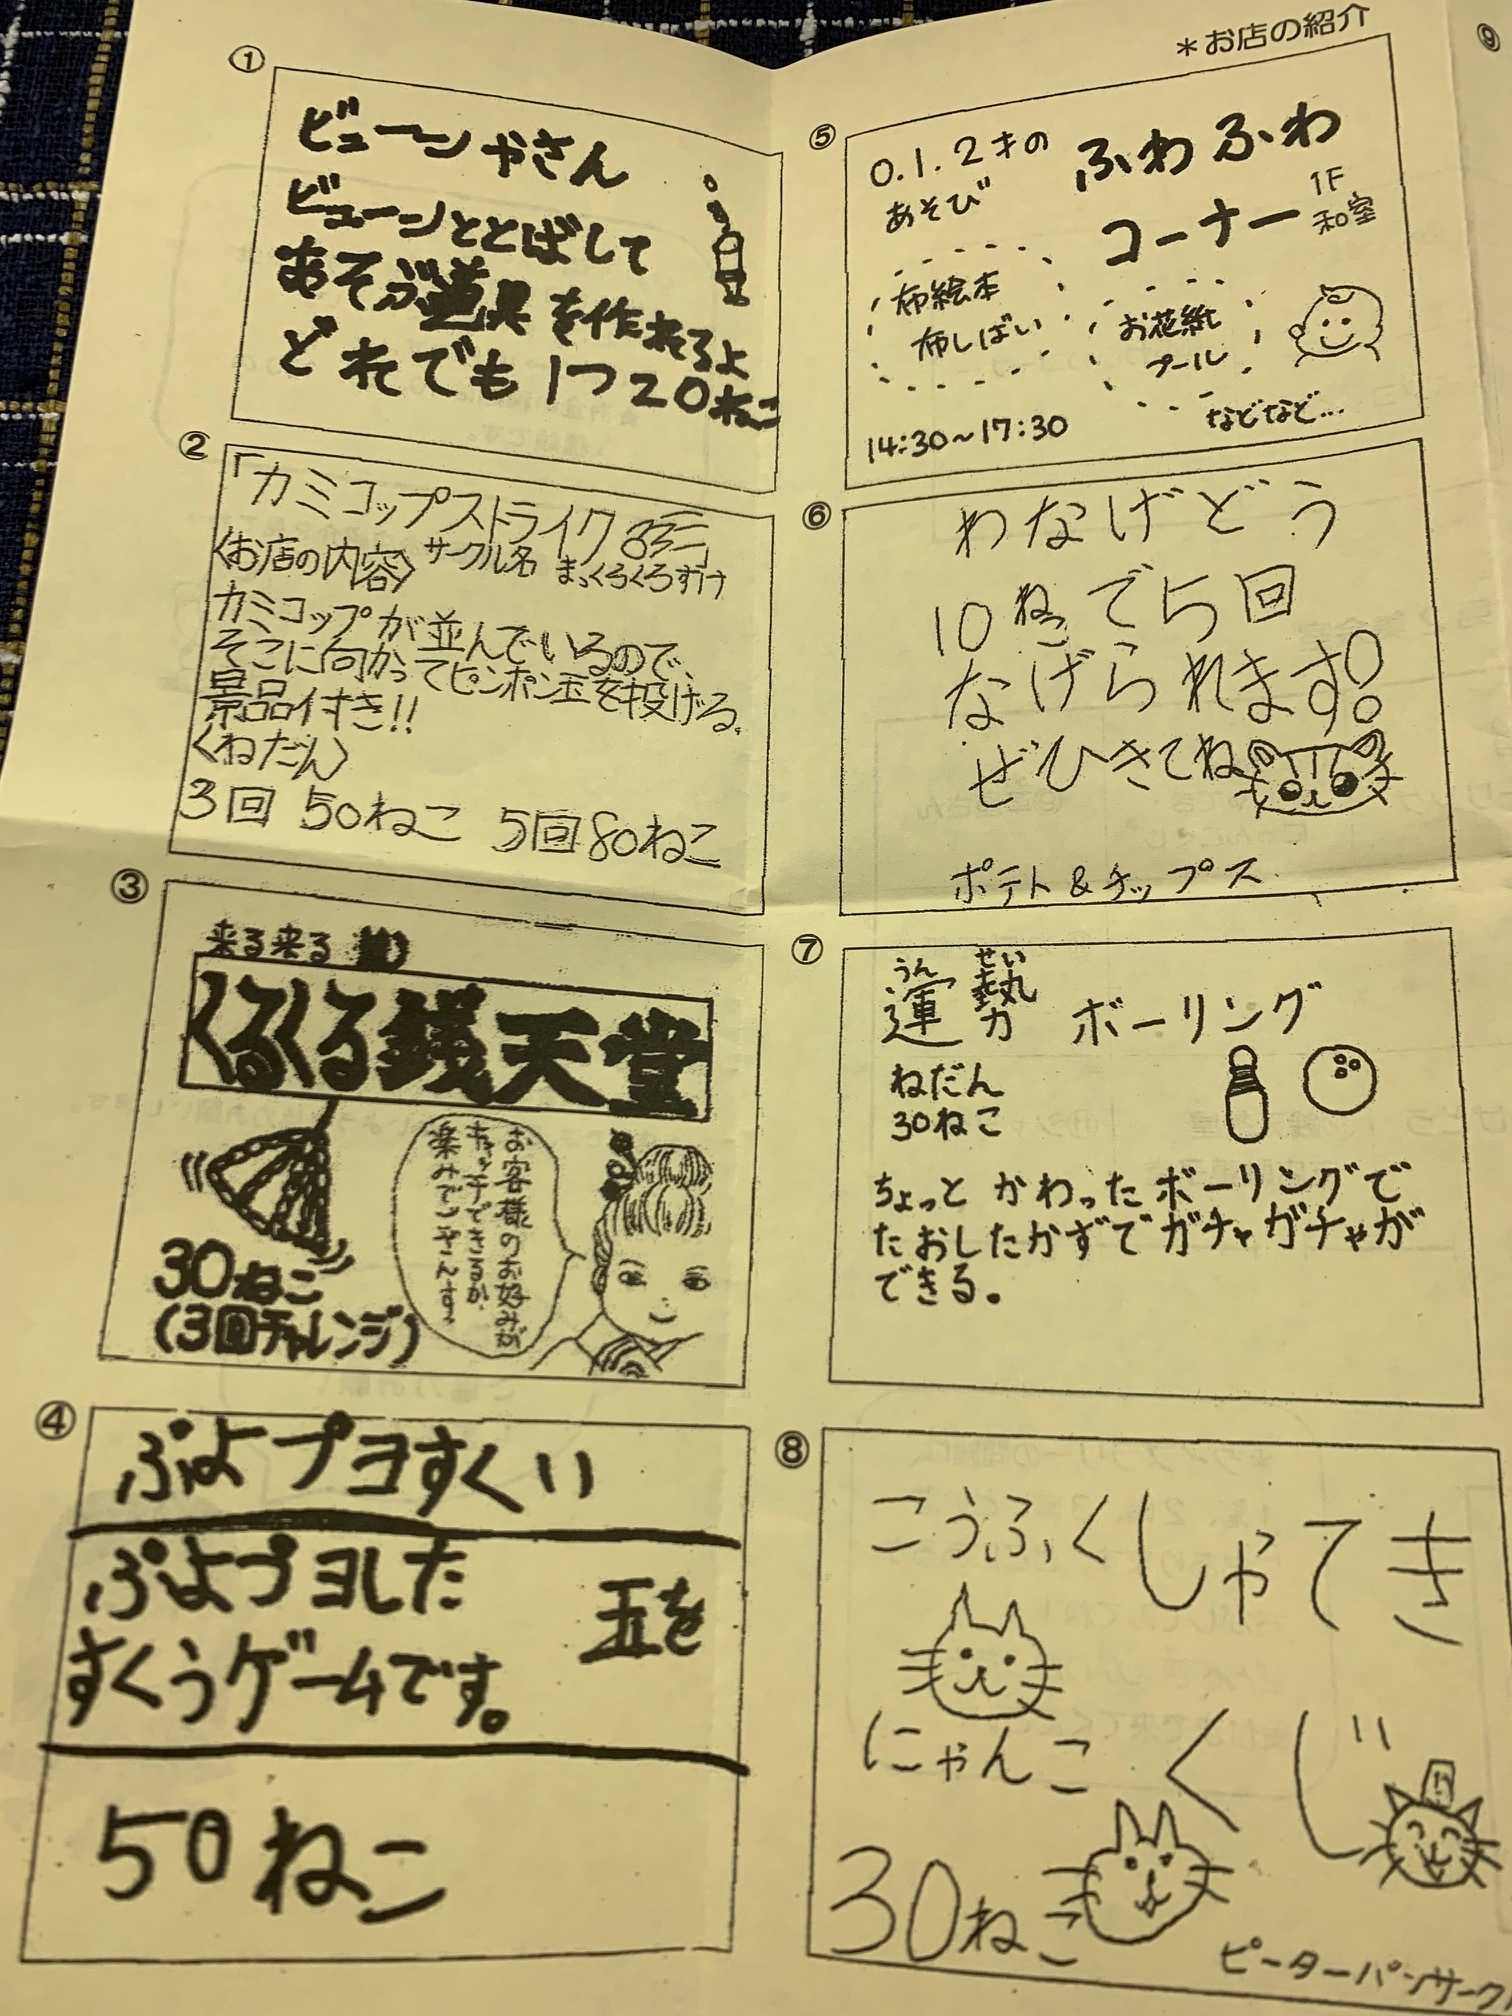 *お店の紹介
①
ビューンやさん
ビューンととばして
あそぶ道具を作れるよ
どれでも1つ20ねこ
②
「カミコップストライク
〈お店の内容〉 サークル名 まっくろくろすけ
カミコップが並んでいるので、
そこに向かってピンポン玉を投げる。
景品付き!!
〈ねだん〉
3回 50ねこ 5回80ねこ
③
来る来る
くるくる銭天堂
お客様のお好みが
キャッチできるか、
楽みでンやんす
30ねこ
(3回チャレンジ)
④
ぷよプヨすくい
ぷよプヨした 玉を
すくうゲームです。
50ねこ
⑤
0.1.2才の
あそび
ふわふわ
コーナー
1F
和室
布絵本
布しばい
お花紙
プール
などなど…
14:30~17:30
⑥
わなげどう
10ねこで5回
なげられます!
ぜひきてね
ポテト&チップス
⑦
うん せい
運勢 ボーリング
ねだん
30ねこ
ちょっと かわったボーリングで
たおしたかずでガチャガチャが
できる。
⑧
こうふくしゃてき
にゃんこくじ
30ねこ
ピーターパンサークル
⑨